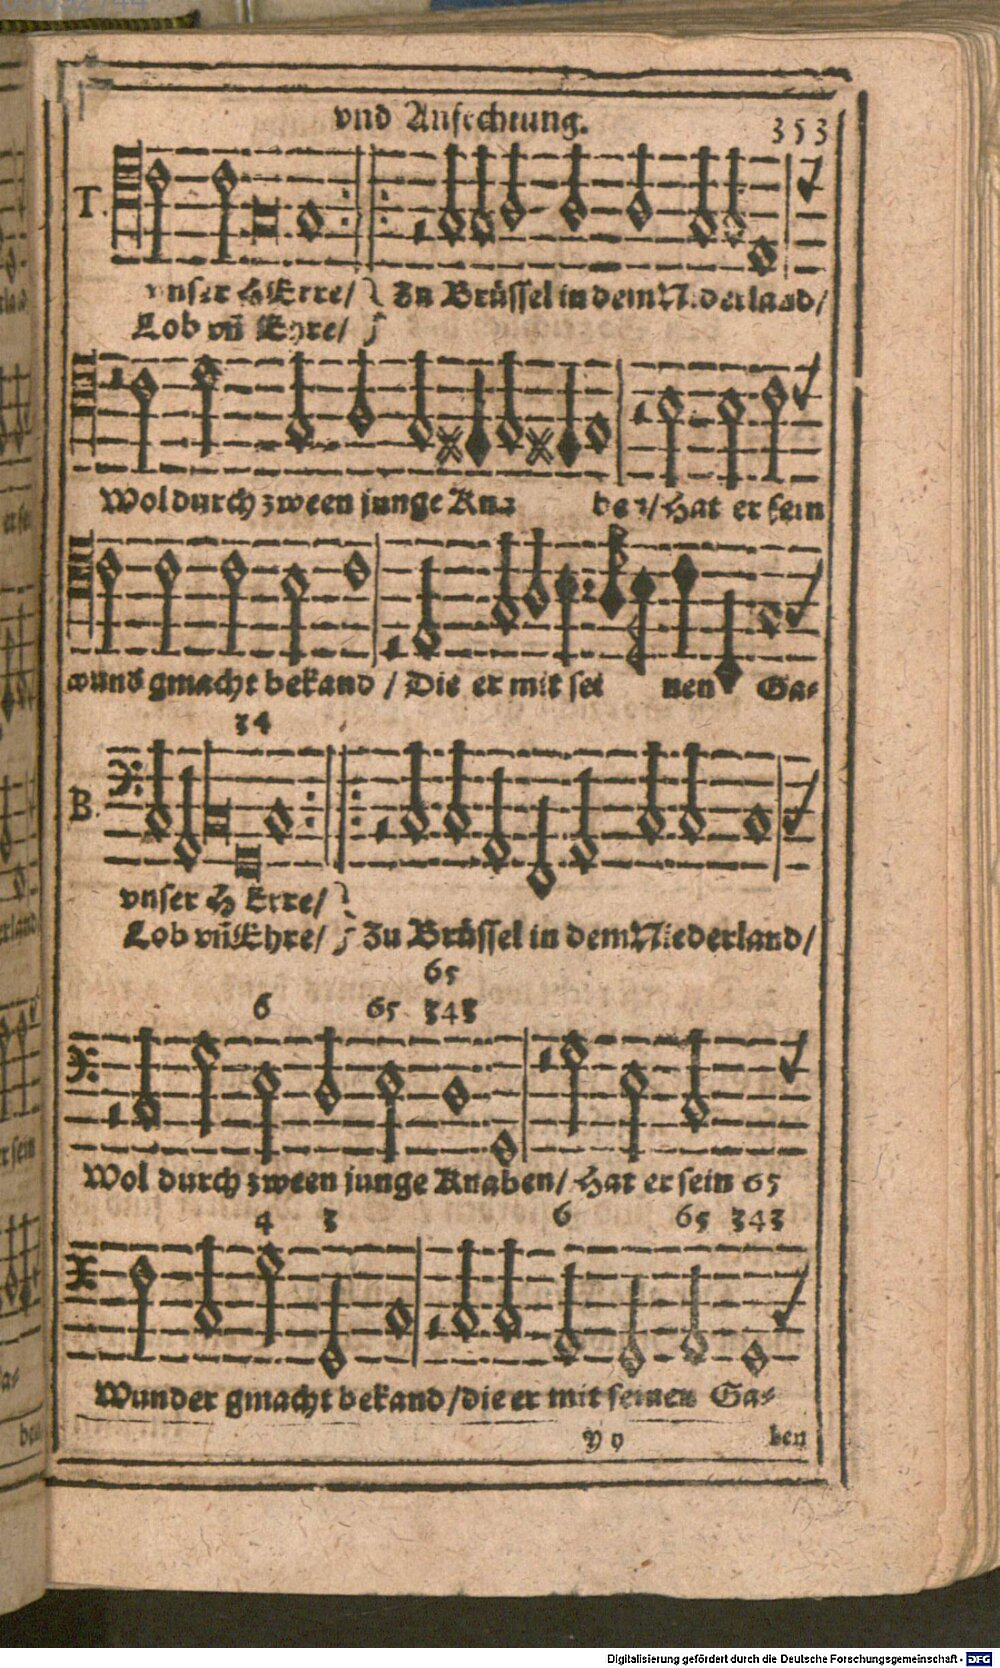 vnd Anfechtung.
353
T.
vnser HErre/ } Zu Brüssel in dem Niderland/
Lob vñ Ehre/
Wol durch zween junge Kna- ben/ Hat er sein
wund gmacht bekand / Die er mit sei nen Ga-
34
B.
vnser HErre/
Lob vñ Ehre/ } Zu Brüssel in dem Niederland/
65
6 65 343
Wol durch zween junge Knaben/ Hat er sein 65
4 3 6 65 343
Wunder gmacht bekand/die er mit seinen Ga-
ben
Digitalisierung gefördert durch die Deutsche Forschungsgemeinschaft - DFG